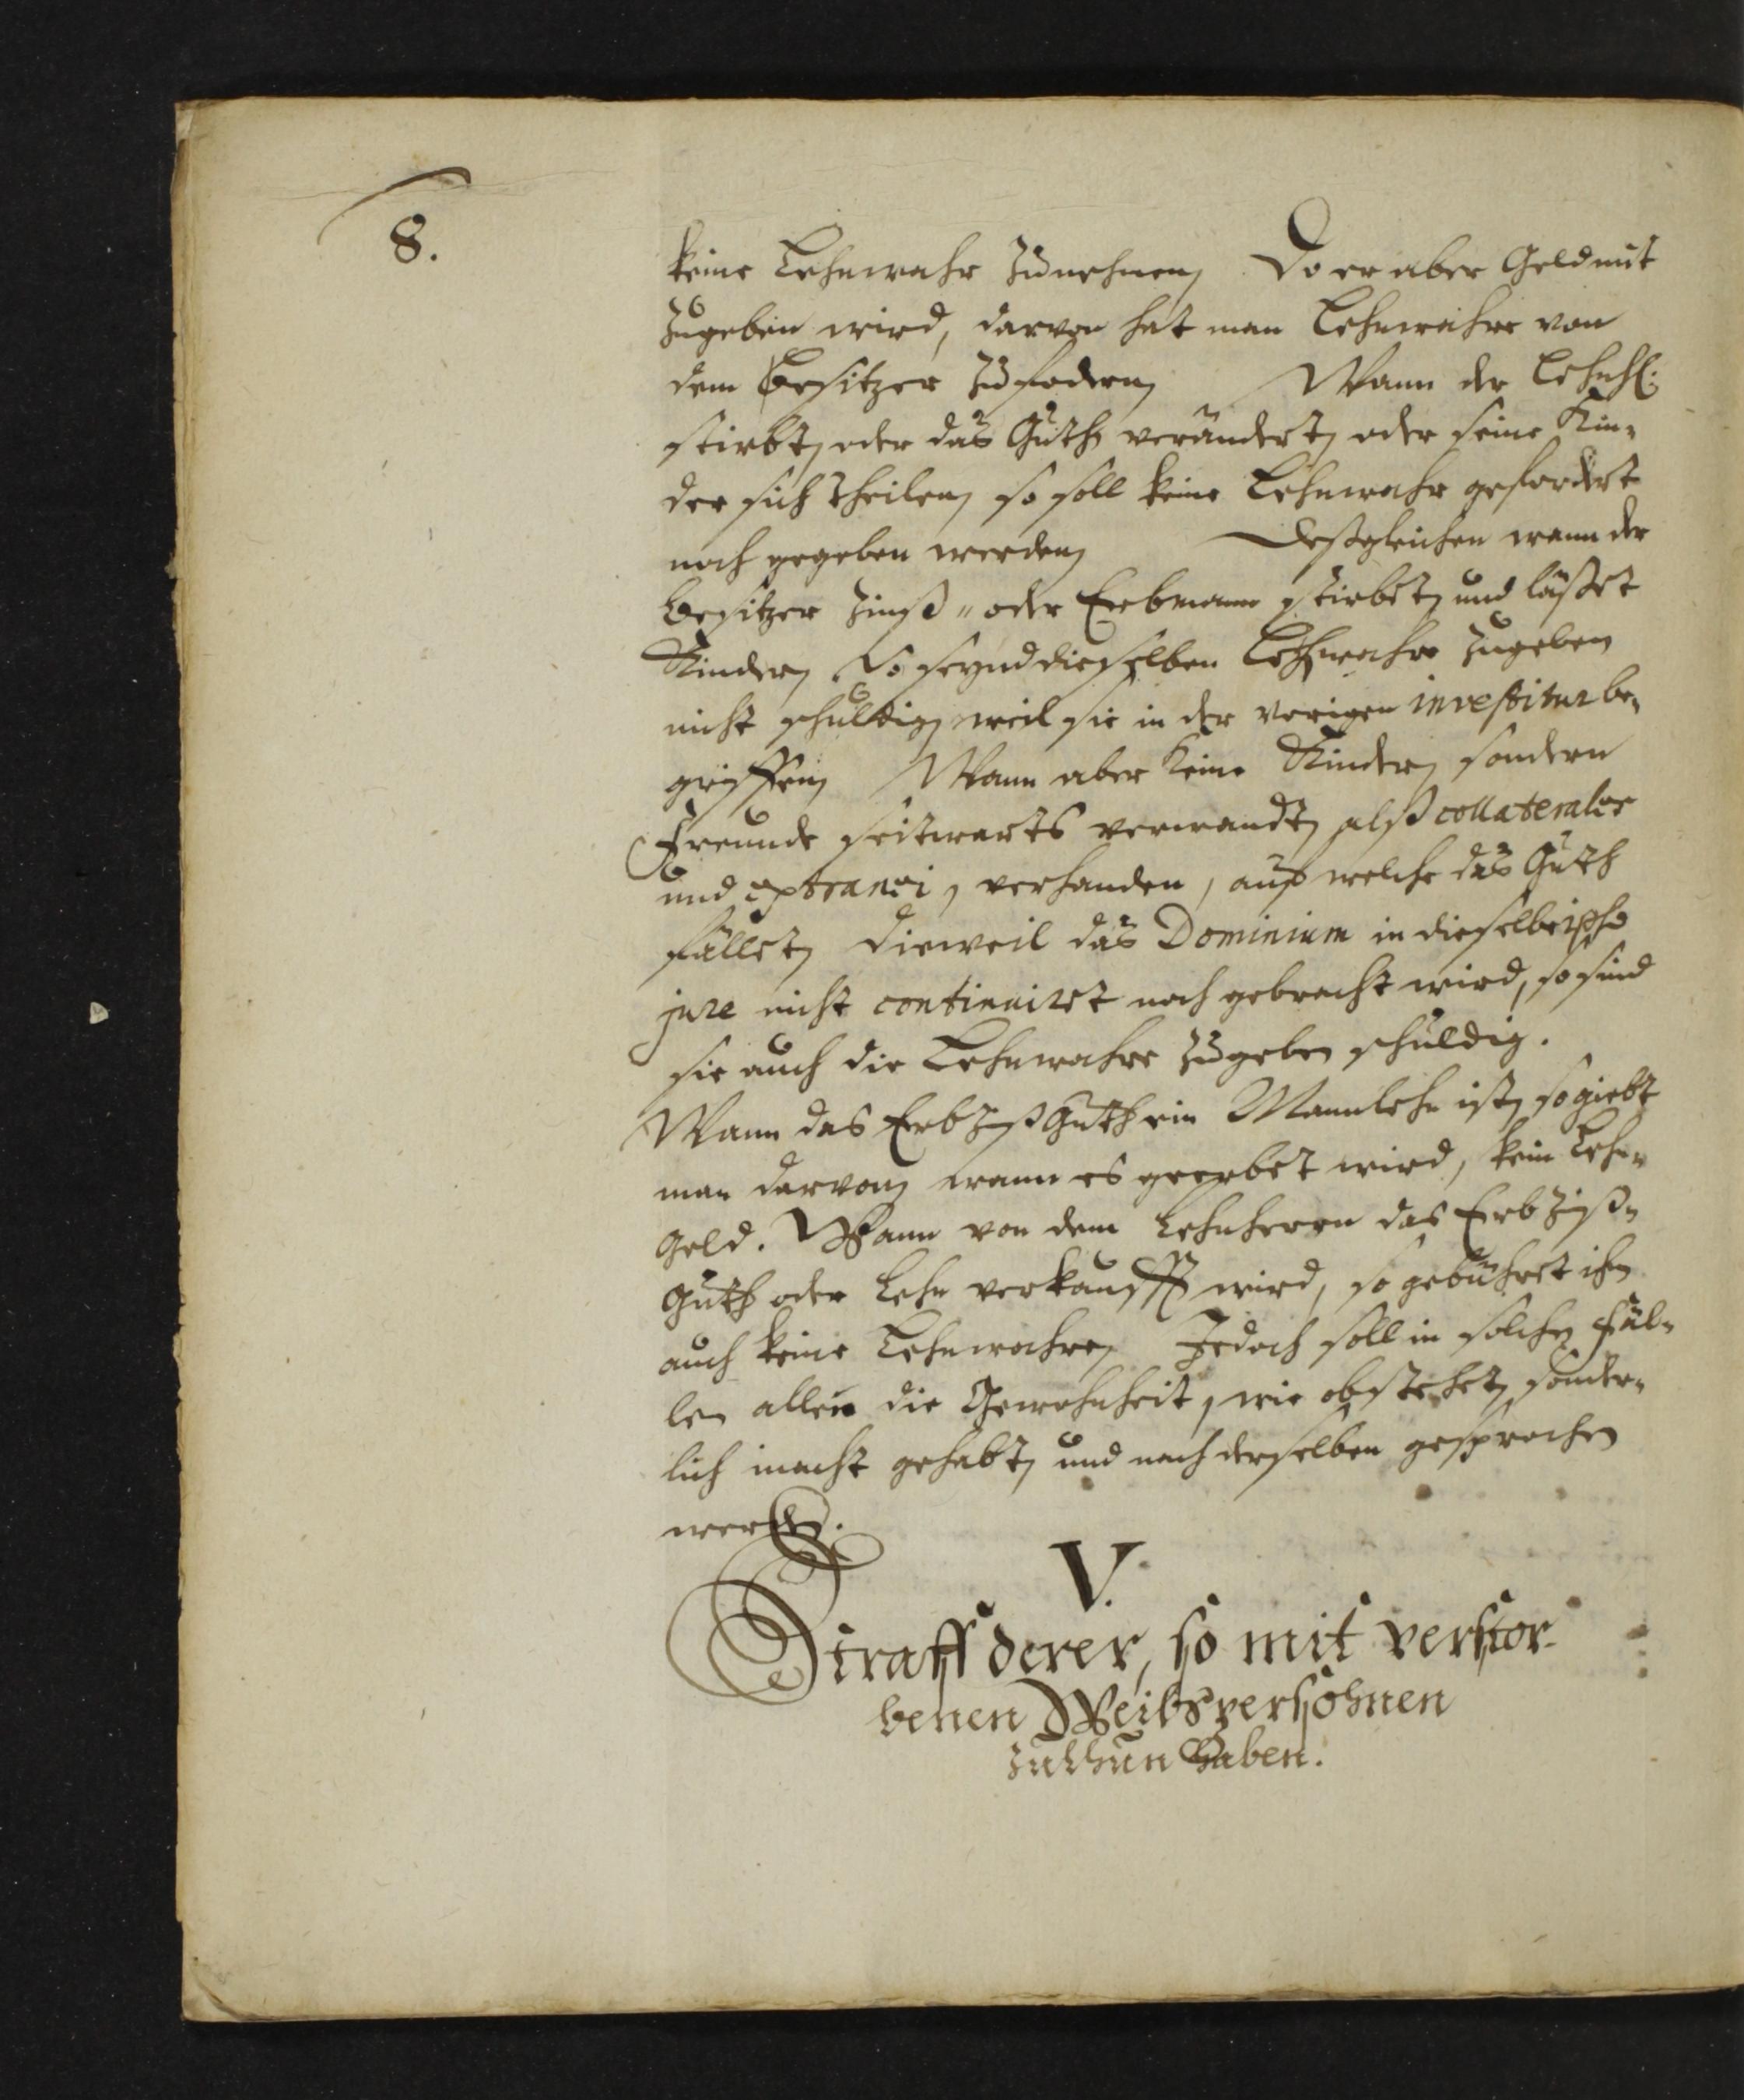 8.
keine Lehnwahr zunehmen, Do er aber Geld mit
zugeben wird, darvon hat man Lehnwahre von
dem Besitzer zu fodern, Wann der Lehnh:
stirbt, oder das Guth verändert, oder seine Kin-
der sich theilen, so soll keine Lehnwahr gefordert
noch gegeben werden, Deßgleichen wann der
Besitzer Zinß- oder Erbmann stirbet, und läßet
Kinder, So seynd dieselben Lehnwahre zugeben
nicht schuldig, weil sie in der vorigen investitur be-
griffen, Wann aber keine Kinder, sondern
Freunde seitwarts verwandt, alß collaterales
und extranei, verhanden, auf welche das Guth
fället, dieweil das Dominium in dieselbe ipso
jure nicht continuiret noch gebracht wird, so sind
sie auch die Lehnwahre zugeben schuldig.
Wann das Erbzinßguth ein Mannlehn ist, so giebt
man darvon, wann es geerbet wird, kein Lehn-
geld. Wann von dem Lehnherrn das Erbzinß-
guth oder Lehn verkaufft wird, so gebühret ihm
auch keine Lehnwahre, Jedoch soll in solchen Fäl-
len allen die Gewohnheit, wie obstehet, sonder-
lich in acht gehabt, und nach derselben gesprochen
werden.
V.
Straff derer, so mit verstor-
benen Weibspersohnen
zuthun haben.